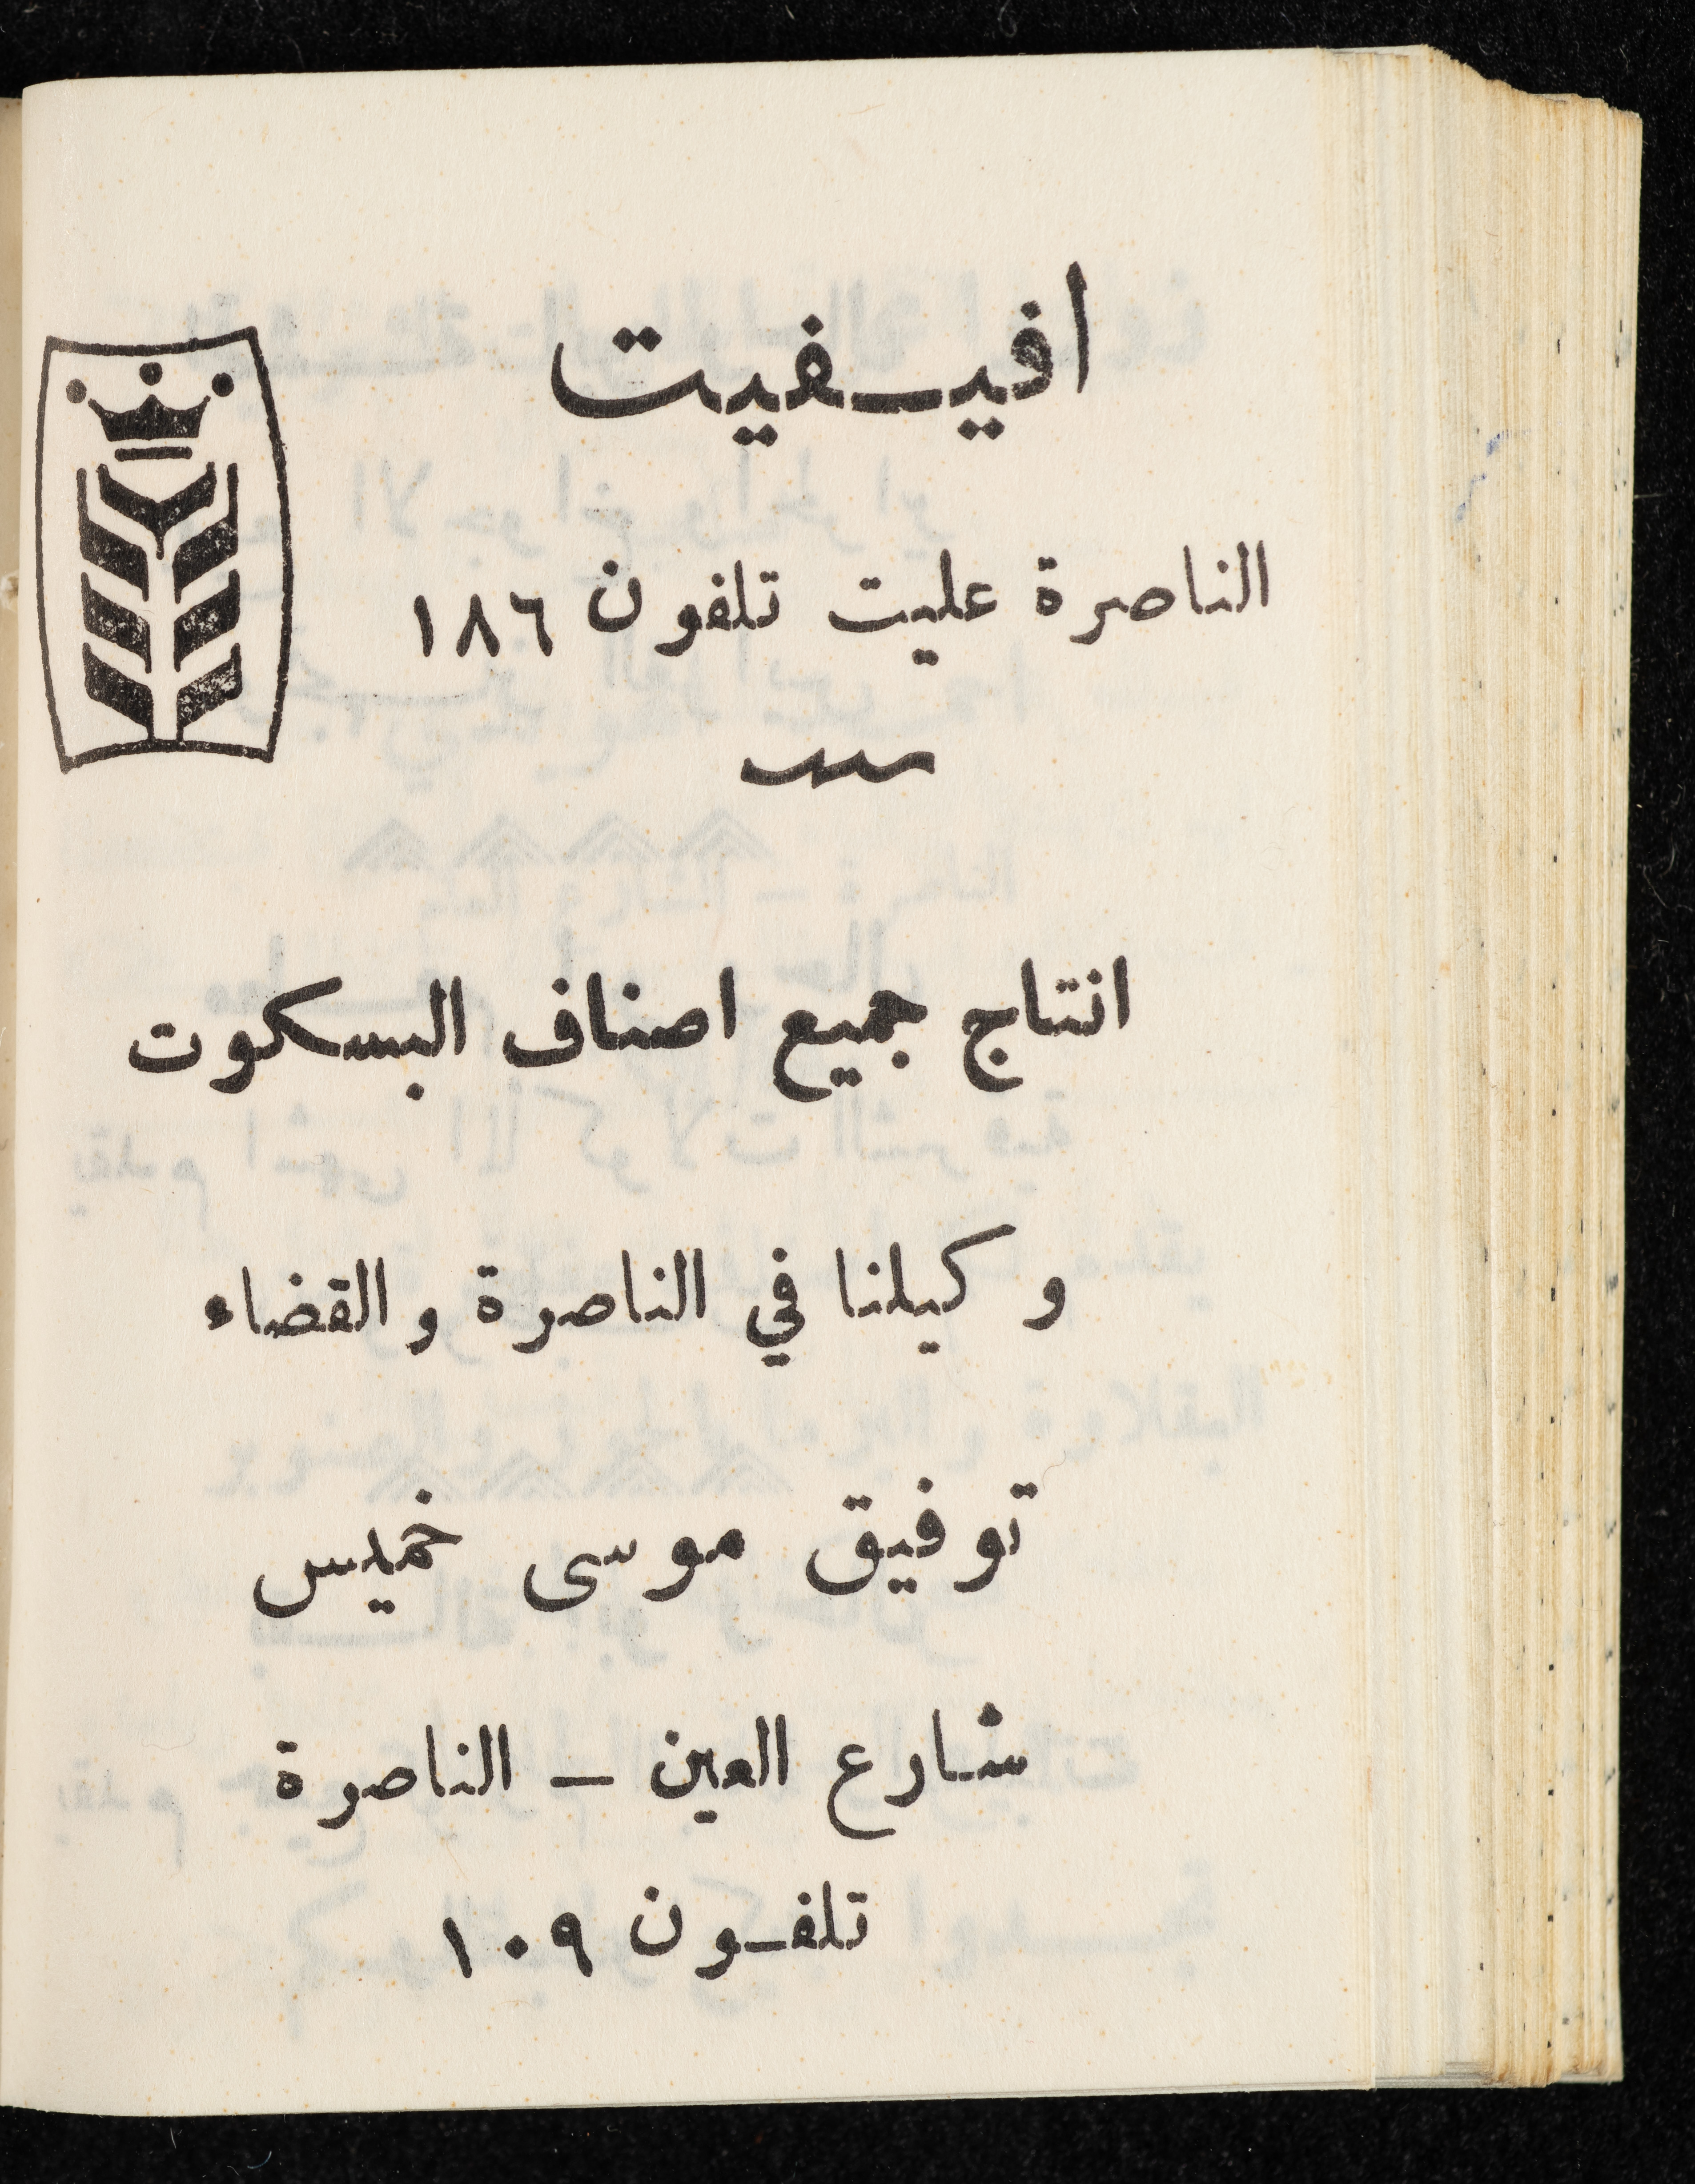 افيفيت
الناصرة عليت تلفون ١٨٦
انتاج جميع اصناف البسكوت
وكيلنا في الناصرة والقضاء
توفيق موسى خميس
شارع العين – الناصرة
تلفون ١٠٩